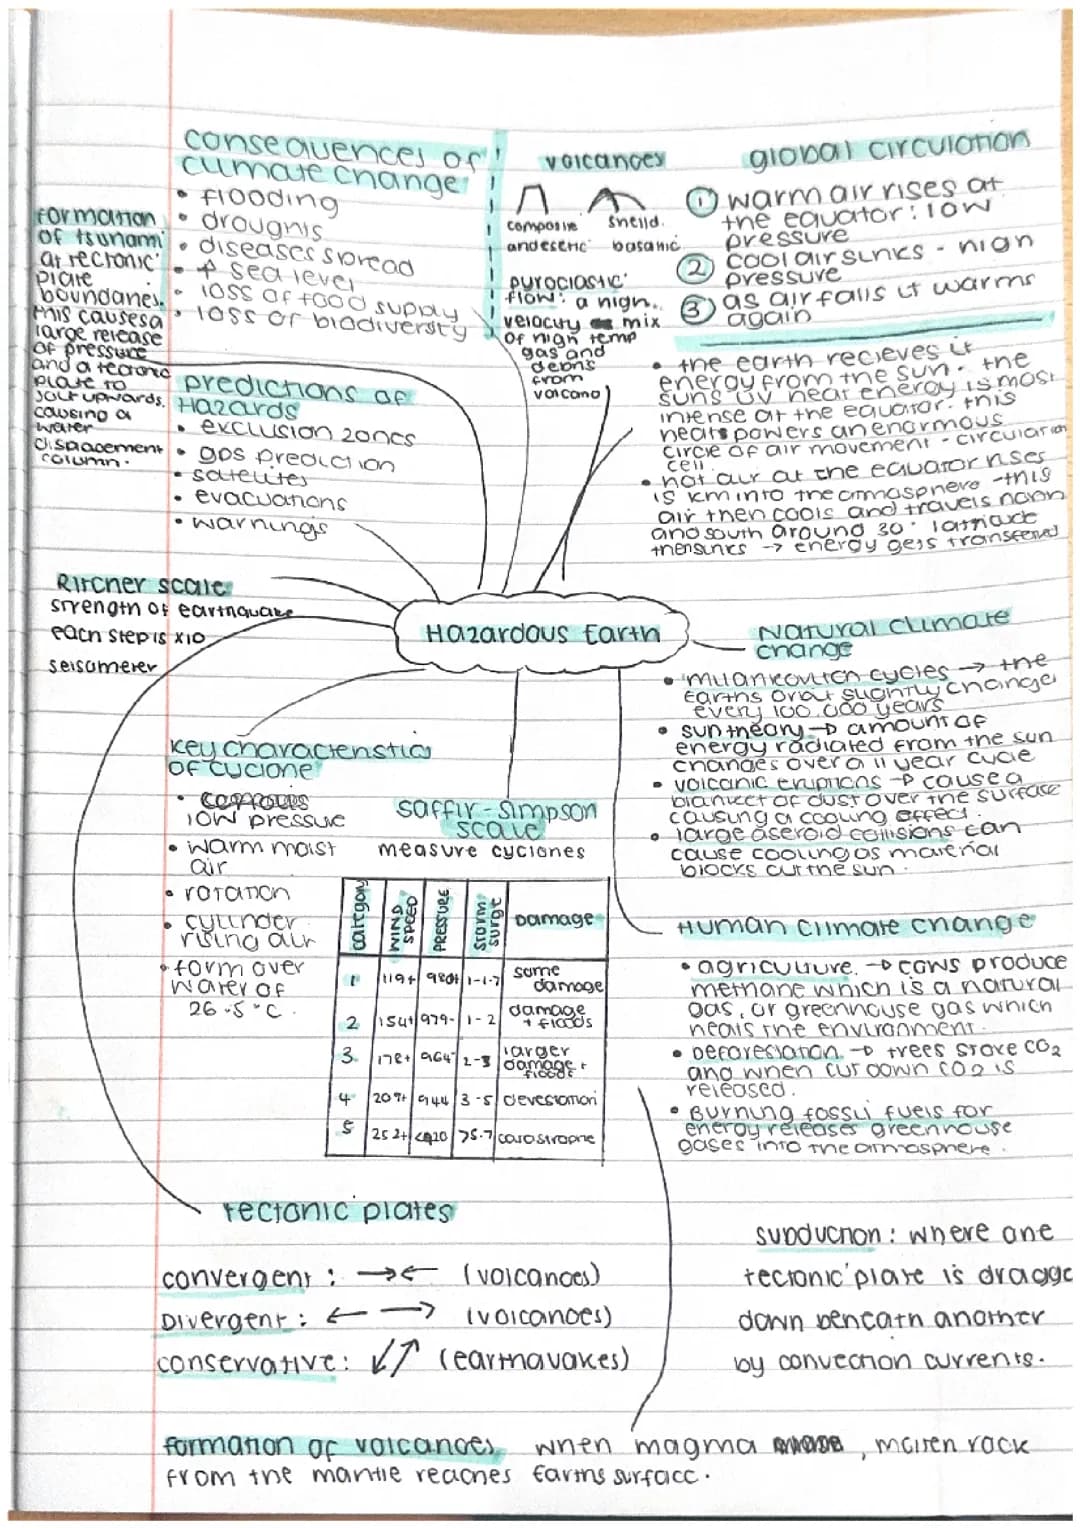 consequences of
climate change
• flooding
• droughts
• diseases spread
• ↑ sea level
• loss of food supply
• loss of biodiversity
formation
of tsunami
at tectonic
plate
boundaries.
this causes a
large release
of pressure
and a tectonic
plate to
jolt upwards.
causing a
water
disaacement
column.
volcanoes
composite
andesetic
shelld.
basaltic
pyroclastic
flow: a high.
velocity mix
of high temp
gas and
debris
from
volcano
global circulation
① warm air rises at
the equator: low
pressure
② cool air sinks - high
pressure
③ as air falls it warms
again
• the earth recieves it
energy from the sun. the
suns UV heat energy is most
intense at the equator. this
heat powers an enormous
circle of air movement - circulation
cell
• hot air at the equator rises
15 km into the atmosphere - this
air then cools and travels north
and south around 30° latitude
then sinks → energy gets transferred
predictions of
Hazards
• exclusion zones
• gps prediction
• satelites
• evacuations
• warnings
Ritcher scale
strength of earthquake
each step is x10
seisometer
Hazardous Earth
Natural climate
change
• milankovitch cycles → the
Earths orbit slightly change
every 100.000 years
• sun theory → amount of
energy radiated from the sun
changes over a 11 year cycle
• volcanic eruptions → cause a
blanket of dust over the surface
causing a cooling effect.
• large aseroid collisions can
cause cooling as material
blocks out the sun.
key characteristics
of cyclone
• low pressure
• warm moist
air
• rotation
• cylinder
rising air
• form over
water of
26.5°C.
saffir-simpson
scale
measure cyclones
category WIND SPEED PRESSURE storm surge Damage
1 119+ 980+ 1-1.7 some damage
2 154+ 979- 1-2 damage + floods
3 178+ 964- 2-3 larger damage + floods
4 209+ 944 3-5
5 252+ <920 75.7 catastrophe
Human climate change
• agriculture. → cows produce
methane which is a natural
gas, or greenhouse gas which
heats the environment.
• Deforestation → trees store CO2
and when cut down CO2 is
released.
• Burning fossil fuels for
energy releases greenhouse
gases into the atmosphere.
tectonic plates
convergent: →← (volcanoes)
Divergent: ← → (volcanoes)
conservative: ↙↗ (earthquakes)
subduction: where one
tectonic plate is dragge
down beneath another
by convection currents.
formation of volcanoes when magma , molten rock
from the mantle reaches Earths surface.